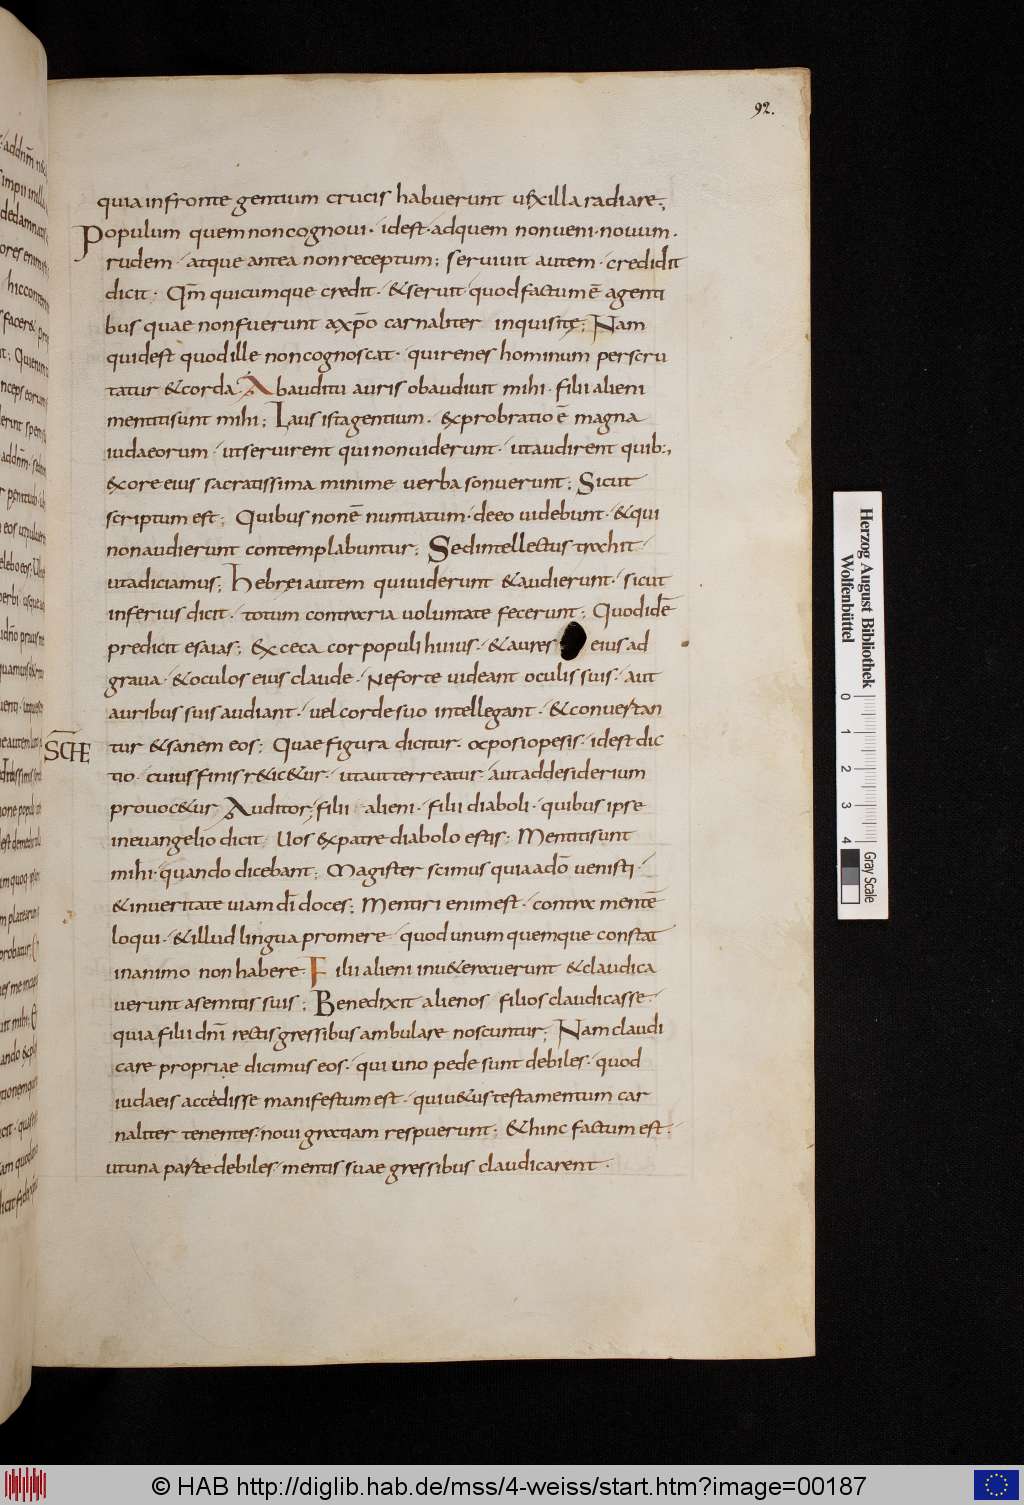 92.
quia in fronte gentium crucis habuerunt uexilla radiare;
Populum quem non cognoui· idest· ad quem non ueni· nouum·
rudem· atque antea non receptum; seruiuit autem· credidit
dicit; Qm̄ quicumque credit· & seruit· quod factum ē agenti
bus quae non fuerunt a xp̄o carnaliter inquisite; Nam
quid est quod ille non cognoscat· qui renes hominum perscru
tatur & corda· Ab auditu auris obaudiuit mihi· filii alieni
mentiti sunt mihi; Laus ista gentium· exprobratio ē magna
iudaeorum· ut seruirent qui non uiderunt· ut audirent quib:,
ex ore eius sacratissima minime uerba sonuerunt; Sicut
scriptum est; Quibus non ē nuntiatum· de eo uidebunt· & qui
non audierunt contemplabuntur; Sed intellectus trahit·
ut adiciamus; Hebręi autem qui uiderunt & audierunt· sicut
inferius dicit· totum contraria uoluntate fecerunt; Quod idē
predicit esaias; exceca cor populi huius· & aures eius ad
graua· & oculos eius claude· Ne forte uideant oculis suis· aut
auribus suis audiant· uel corde suo intellegant· & conuertan
SCHE
tur & sanem eos; Quae figura dicitur· aposiopesis· idest dic
tio· cuius finis r&ic&ur· ut aut terreatur· aut ad desiderium
prouoc&ur Auditor; filii alieni· filii diaboli· quibus ipse
in euangelio dicit; Uos ex patre diabolo estis; Mentiti sunt
mihi· quando dicebant; Magister scimus quia a dō uenisti·
& in ueritate uiam dī doces; Mentiri enim est· contra mentē
loqui· & illud lingua promere· quod unum quemque constat
in animo non habere· Filii alieni inu&erauerunt & claudica
uerunt a semitis suis; Bene dixit alienos filios claudicasse·
quia filii dn̄i rectis gressibus ambulare noscuntur; Nam claudi
care propriae dicimus eos· qui uno pede sunt debiles· quod
iudaeis accedisse manifestum est· qui u&us testamentum car
naliter tenentes· noui gratiam respuerunt; & hinc factum est·
ut una parte debiles· mentis suae gressibus claudicarent·
Herzog August Bibliothek
Wolfenbüttel
0 1 2 3 4
Gray Scale
© HAB http://diglib.hab.de/mss/4-weiss/start.htm?image=00187